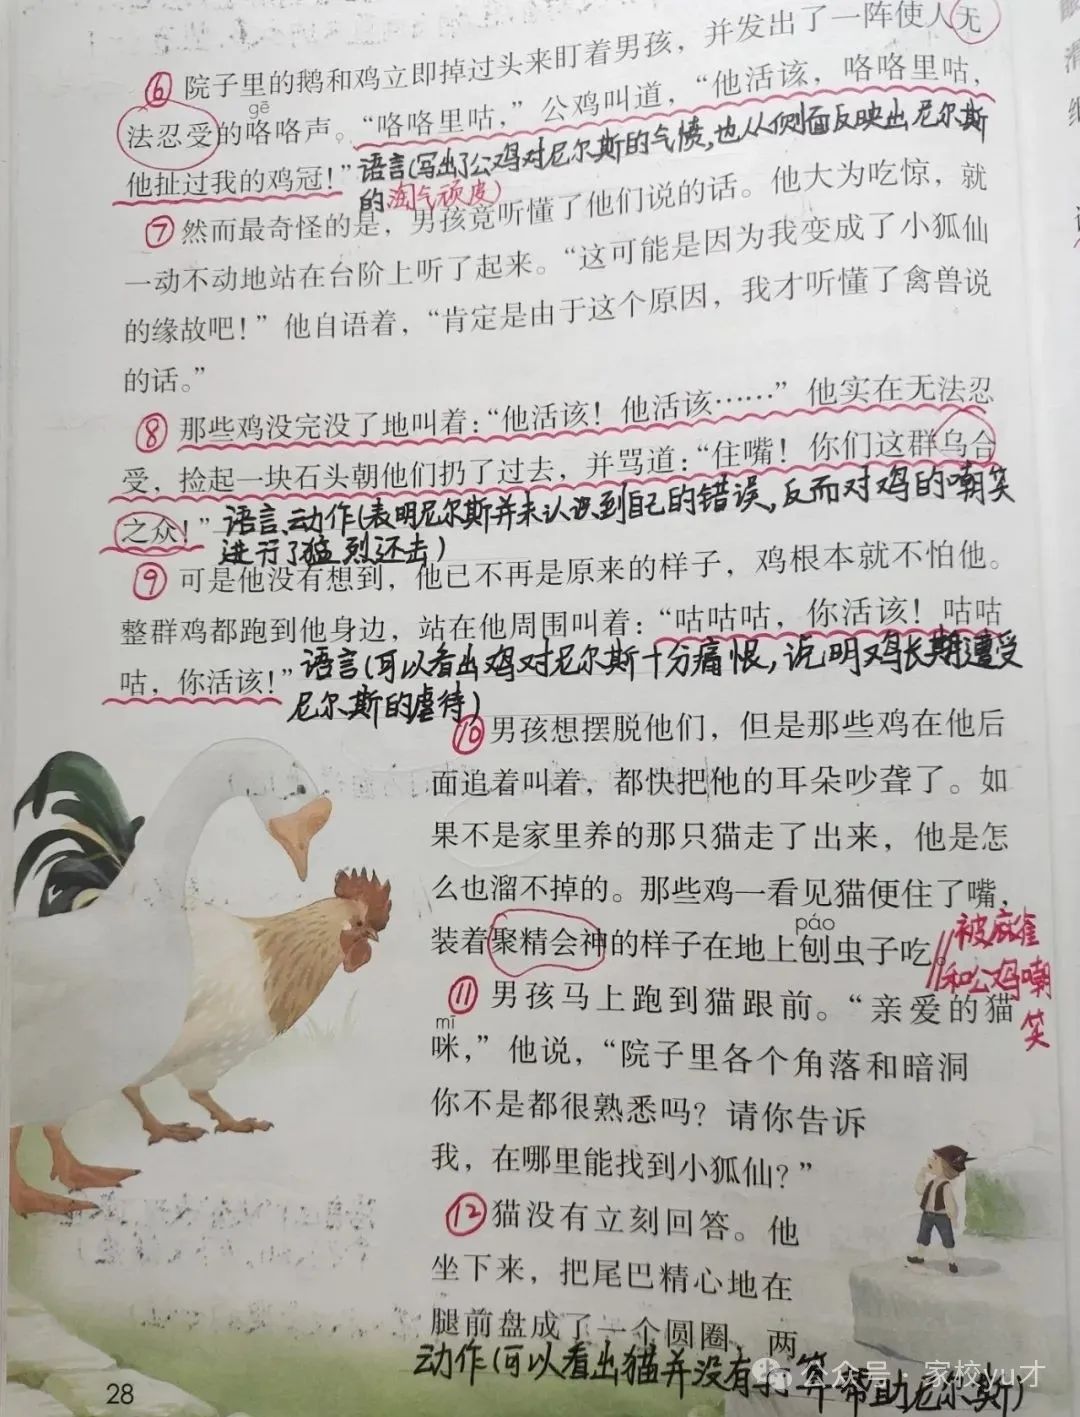 ⑥ 院子里的鹅和鸡立即掉过头来盯着男孩，并发出了一阵使人无
gē
法忍受的咯咯声。“咯咯里咕，”公鸡叫道，“他活该，咯咯里咕，
他扯过我的鸡冠！”
语言(写出了公鸡对尼尔斯的气愤,也从侧面反映出尼尔斯
的淘气顽皮)
⑦ 然而最奇怪的是，男孩竟听懂了他们说的话。他大为吃惊，就
一动不动地站在台阶上听了起来。“这可能是因为我变成了小狐仙
的缘故吧！”他自语着，“肯定是由于这个原因，我才听懂了禽兽说
的话。”
⑧ 那些鸡没完没了地叫着：“他活该！他活该……”他实在无法忍
受，捡起一块石头朝他们扔了过去，并骂道：“住嘴！你们这群乌合
之众！”
语言、动作(表明尼尔斯并未认识到自己的错误,反而对鸡的嘲笑
进行了猛烈还击)
⑨ 可是他没有想到，他已不再是原来的样子，鸡根本就不怕他。
整群鸡都跑到他身边，站在他周围叫着：“咕咕咕，你活该！咕咕
咕，你活该！”
语言(可以看出鸡对尼尔斯十分痛恨,说明鸡长期遭受
尼尔斯的虐待)
⑩ 男孩想摆脱他们，但是那些鸡在他后
面追着叫着，都快把他的耳朵吵聋了。如
果不是家里养的那只猫走了出来，他是怎
么也溜不掉的。那些鸡一看见猫便住了嘴，
páo
装着聚精会神的样子在地上刨虫子吃。
被麻雀
和公鸡嘲
笑
⑪ 男孩马上跑到猫跟前。“亲爱的猫
mī
咪，”他说，“院子里各个角落和暗洞
你不是都很熟悉吗？请你告诉
我，在哪里能找到小狐仙？”
⑫ 猫没有立刻回答。他
坐下来，把尾巴精心地在
腿前盘成了一个圆圈，两
动作(可以看出猫并没有打算帮助尼尔斯)
公众号·家校yu才
28